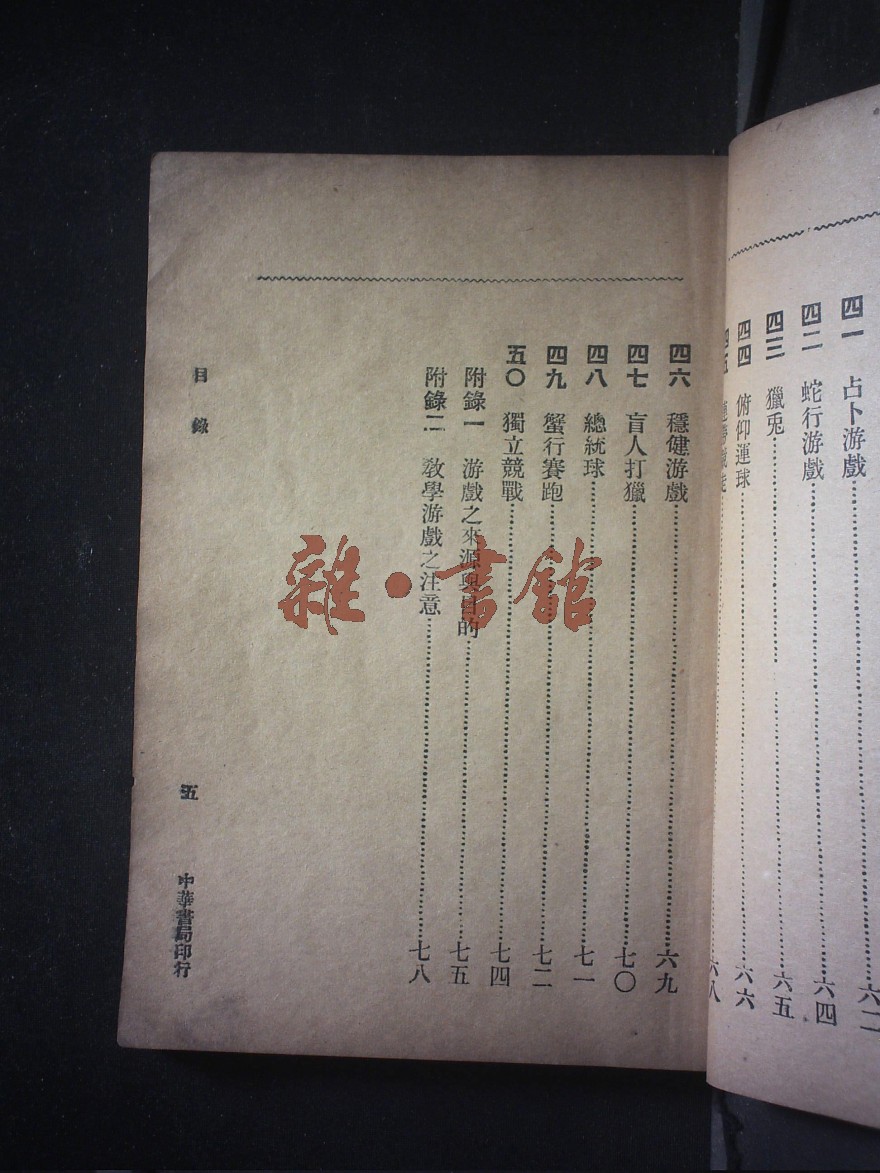 四一 占卜游戲 六二
四二 蛇行游戲 六四
四三 獵兎 六五
四四 俯仰運球 六六
四五 六八
四六 穩健游戲 六九
四七 盲人打獵 七〇
四八 總統球 七一
四九 蟹行賽跑 七二
五〇 獨立競戰 七四
附錄一 游戲之來源與目的 七五
附錄二 教學游戲之注意 七八
目錄
五
中華書局印行
雜·書館